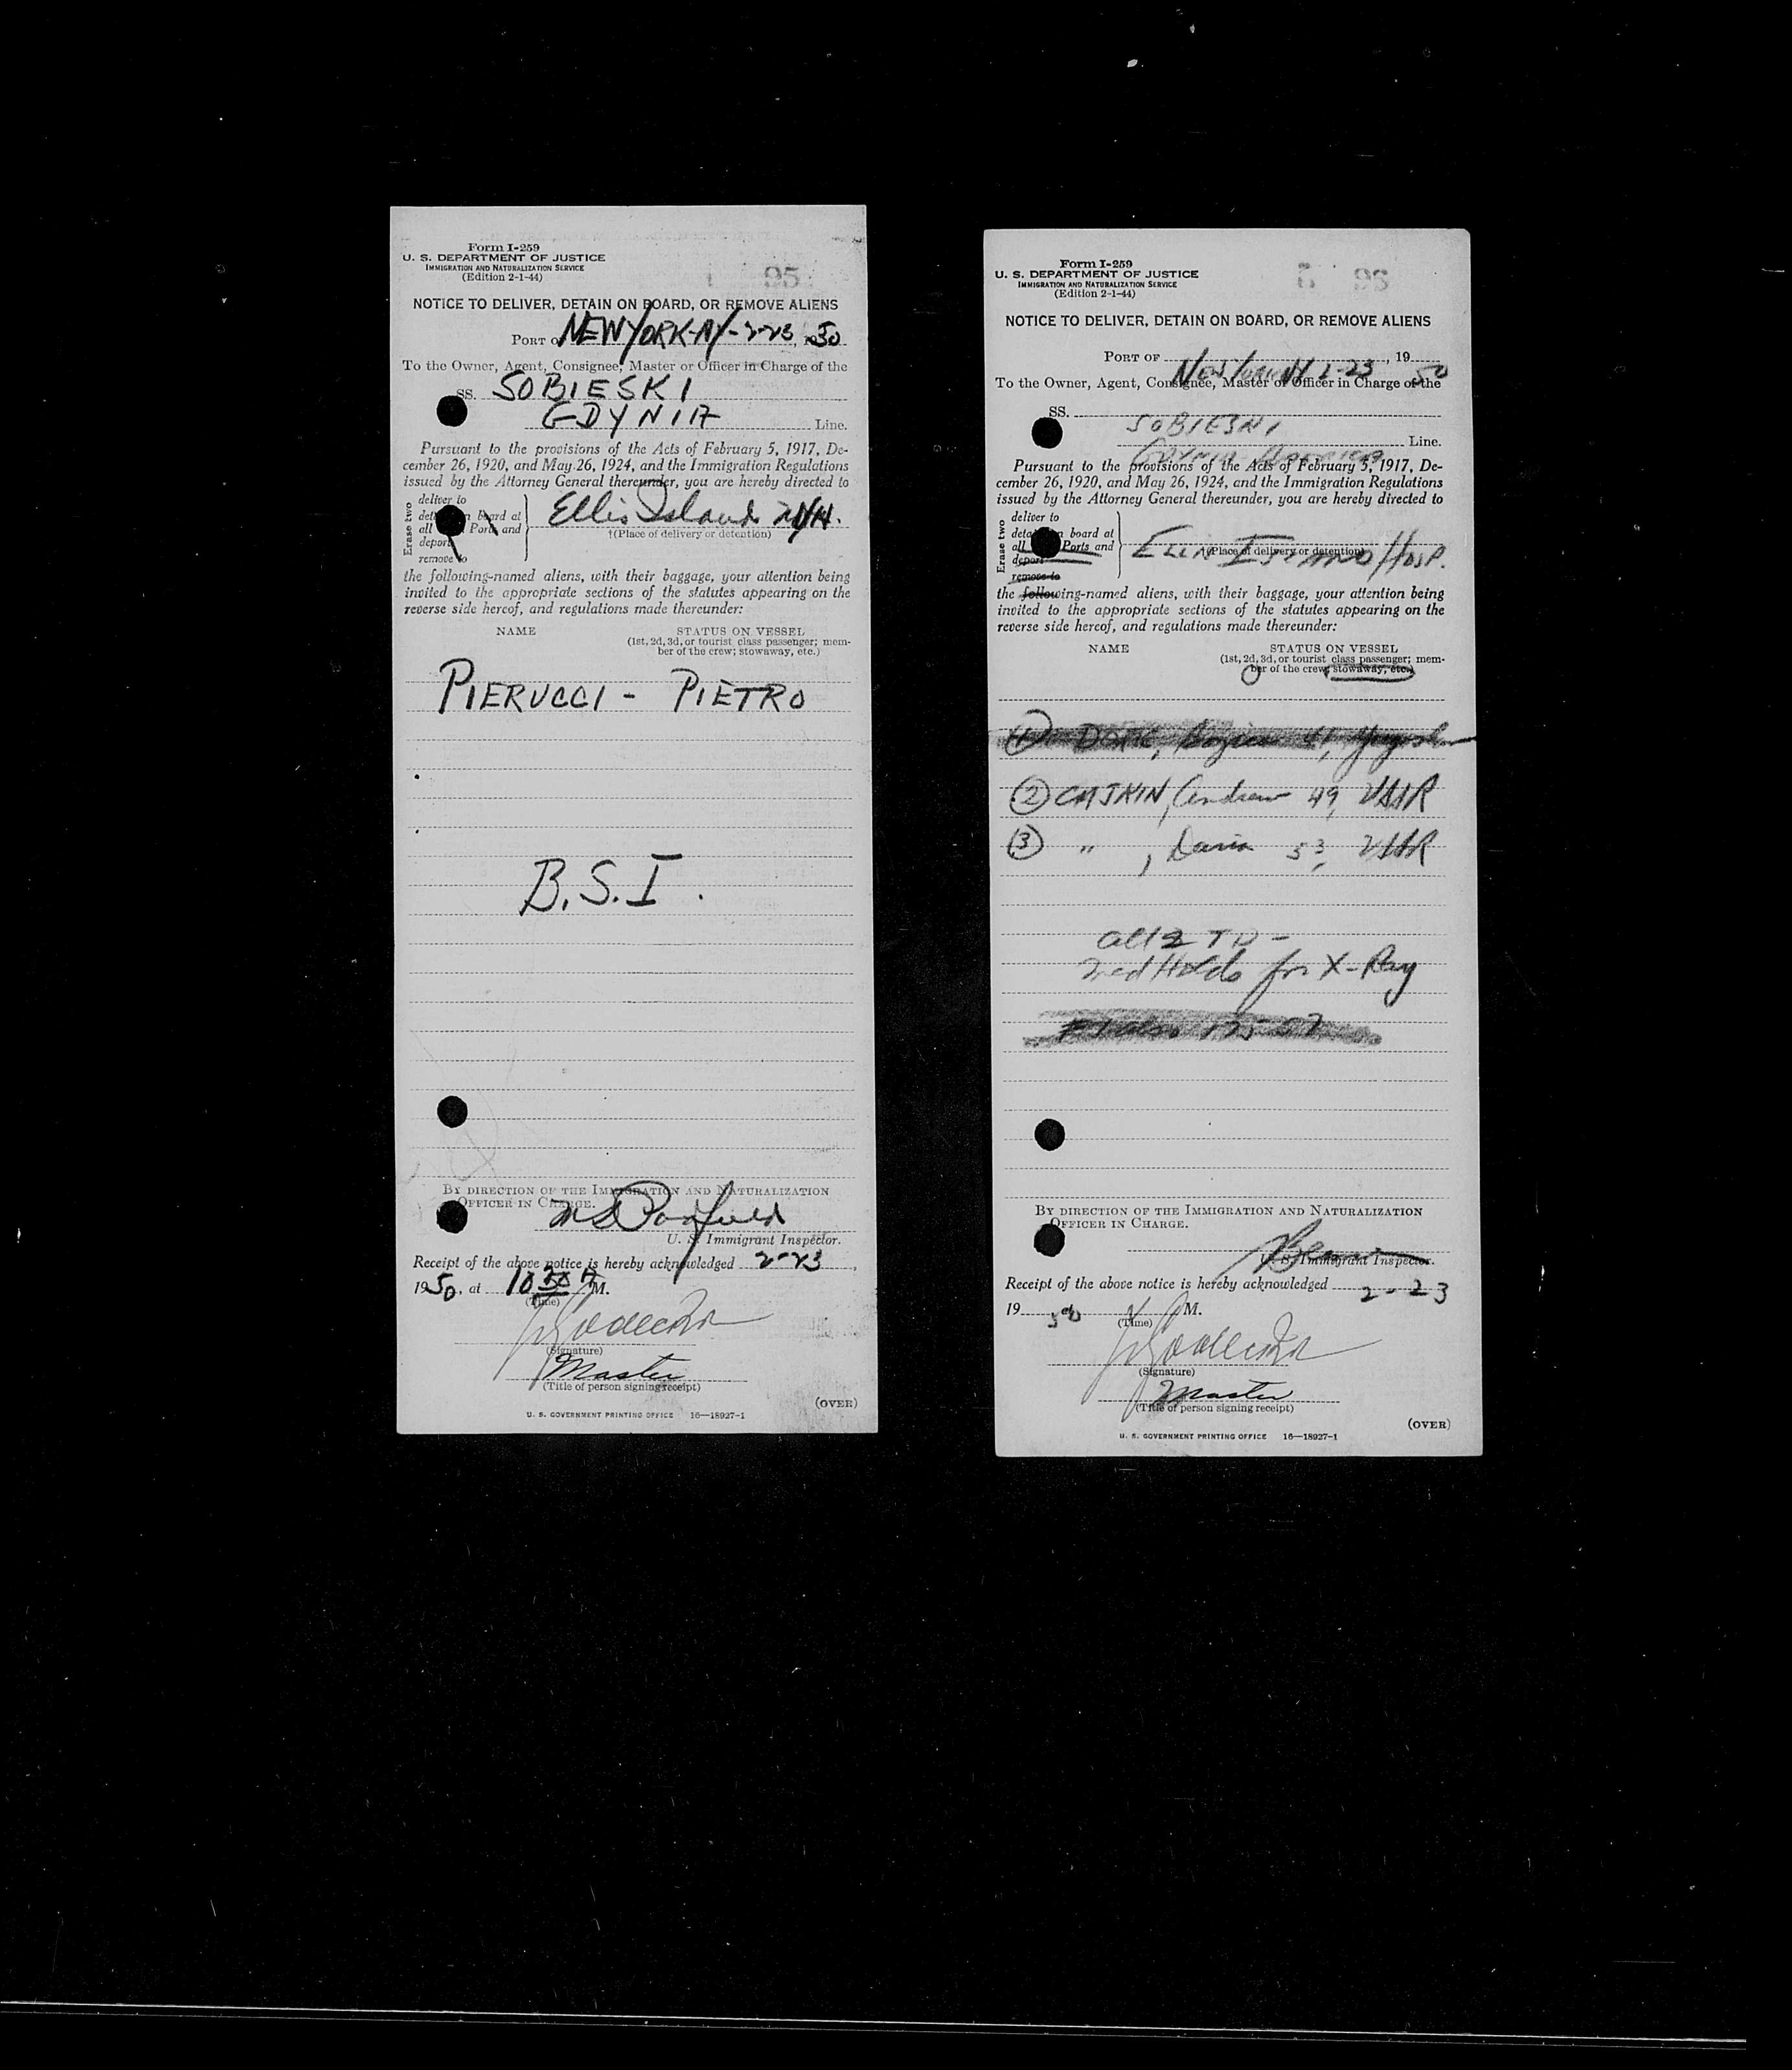 Form I-259
U. S. DEPARTMENT OF JUSTICE
IMMIGRATION AND NATURALIZATION SERVICE
(Edition 2-1-44)
95
NOTICE TO DELIVER, DETAIN ON BOARD, OR REMOVE ALIENS
PORT OF NEW YORK-NY-2-23, 1950
To the Owner, Agent, Consignee, Master or Officer in Charge of the
SS. SOBIESKI
GDYNIA Line.
Pursuant to the provisions of the Acts of February 5, 1917, De-
cember 26, 1920, and May 26, 1924, and the Immigration Regulations
issued by the Attorney General thereunder, you are hereby directed to
Erase two
deliver to
board at
all Ports and
deport
remove to
Ellis Island N.Y.H.
†(Place of delivery or detention)
the following-named aliens, with their baggage, your attention being
invited to the appropriate sections of the statutes appearing on the
reverse side hereof, and regulations made thereunder:
NAME STATUS ON VESSEL
(1st, 2d, 3d, or tourist class passenger; mem-
ber of the crew; stowaway, etc.)
PIERUCCI - PIETRO
B.S.I.
BY DIRECTION OF THE IMMIGRATION AND NATURALIZATION
OFFICER IN CHARGE.
U. S. Immigrant Inspector.
Receipt of the above notice is hereby acknowledged 2-23,
1950, at 10 30 A M.
(Time)
(Signature)
Master
(Title of person signing receipt)
(OVER)
U. S. GOVERNMENT PRINTING OFFICE 16—18927-1
Form I-259
U. S. DEPARTMENT OF JUSTICE
IMMIGRATION AND NATURALIZATION SERVICE
(Edition 2-1-44)
NOTICE TO DELIVER, DETAIN ON BOARD, OR REMOVE ALIENS
PORT OF New York NY 2-23, 19 50
To the Owner, Agent, Consignee, Master or Officer in Charge of the
SS. SOBIESKI
GDYNIA AMERICA Line.
Pursuant to the provisions of the Acts of February 5, 1917, De-
cember 26, 1920, and May 26, 1924, and the Immigration Regulations
issued by the Attorney General thereunder, you are hereby directed to
Erase two
deliver to
board at
all Ports and
deport
remove to
ELLIS ISLAND HOSP.
†(Place of delivery or detention)
the following-named aliens, with their baggage, your attention being
invited to the appropriate sections of the statutes appearing on the
reverse side hereof, and regulations made thereunder:
NAME STATUS ON VESSEL
(1st, 2d, 3d, or tourist class passenger; mem-
ber of the crew; stowaway, etc.)
(1) 41,
(2) Andrew 49, USSR
(3) " , Daria 53, USSR
all 2 TD -
Med Holds for X-Ray
BY DIRECTION OF THE IMMIGRATION AND NATURALIZATION
OFFICER IN CHARGE.
U. S. Immigrant Inspector.
Receipt of the above notice is hereby acknowledged 2-23
19 50 M.
(Time)
(Signature)
Master
(Title of person signing receipt)
(OVER)
U. S. GOVERNMENT PRINTING OFFICE 16—18927-1